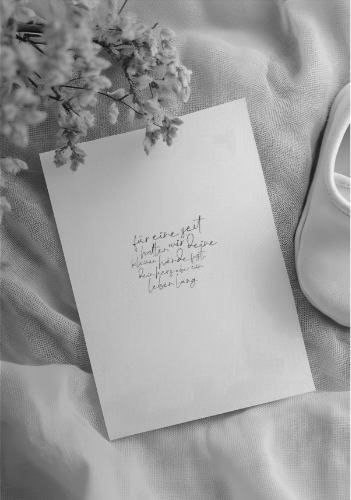 für eine zeit
halten wir deine
kleinen hände fest.
dein herz aber ein
leben lang.